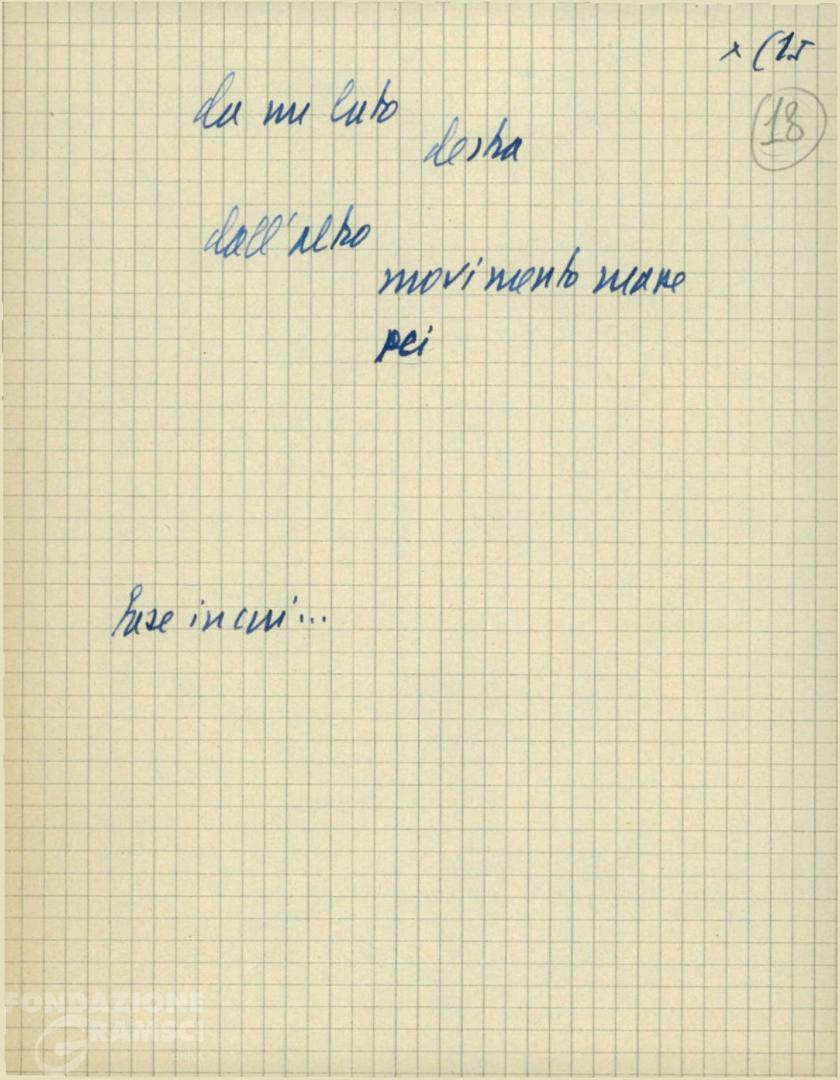 x (15
18
da un lato
destra
dall'altro
movimento masse
pci
fase in cui...
FONDAZIONE
GRAMSCI